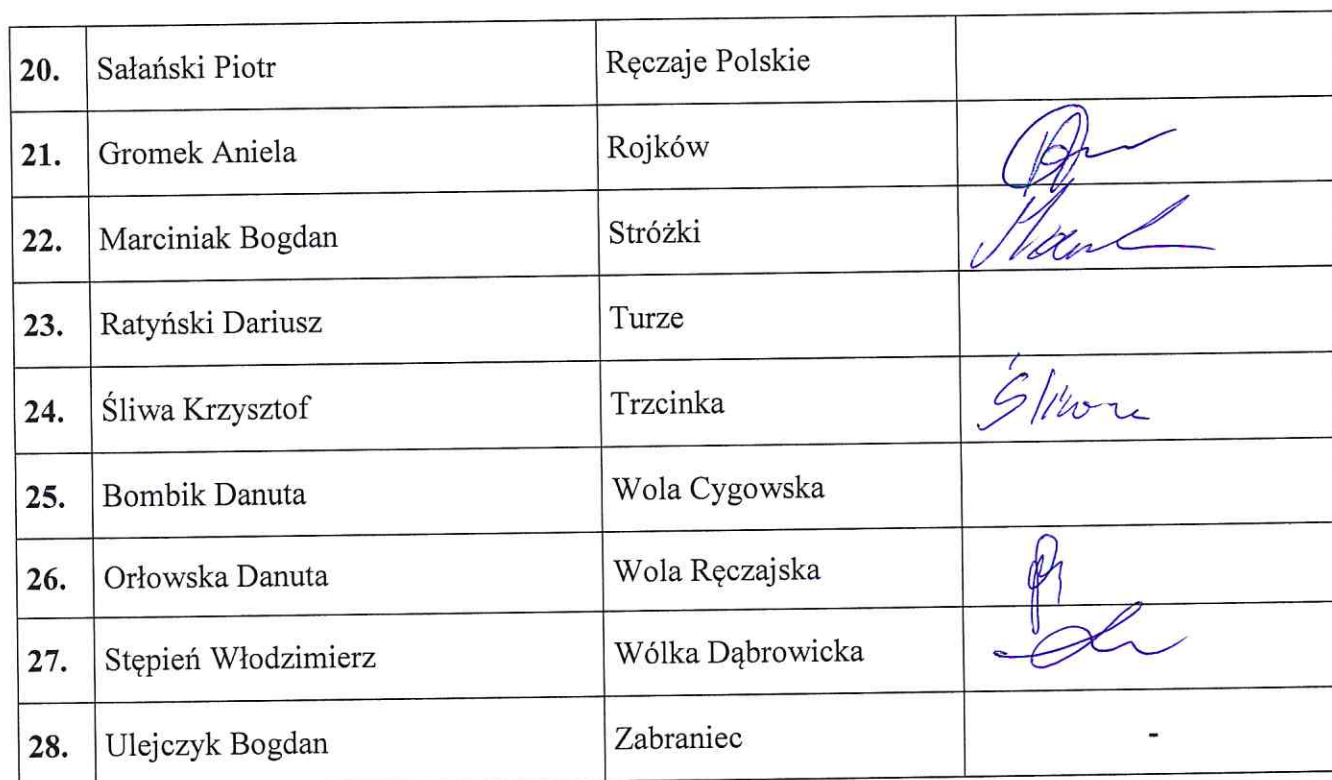 20. Sałański Piotr Ręczaje Polskie
21. Gromek Aniela Rojków
22. Marciniak Bogdan Stróżki
23. Ratyński Dariusz Turze
24. Śliwa Krzysztof Trzcinka Śliwa
25. Bombik Danuta Wola Cygowska
26. Orłowska Danuta Wola Ręczajska
27. Stępień Włodzimierz Wólka Dąbrowicka
28. Ulejczyk Bogdan Zabraniec -